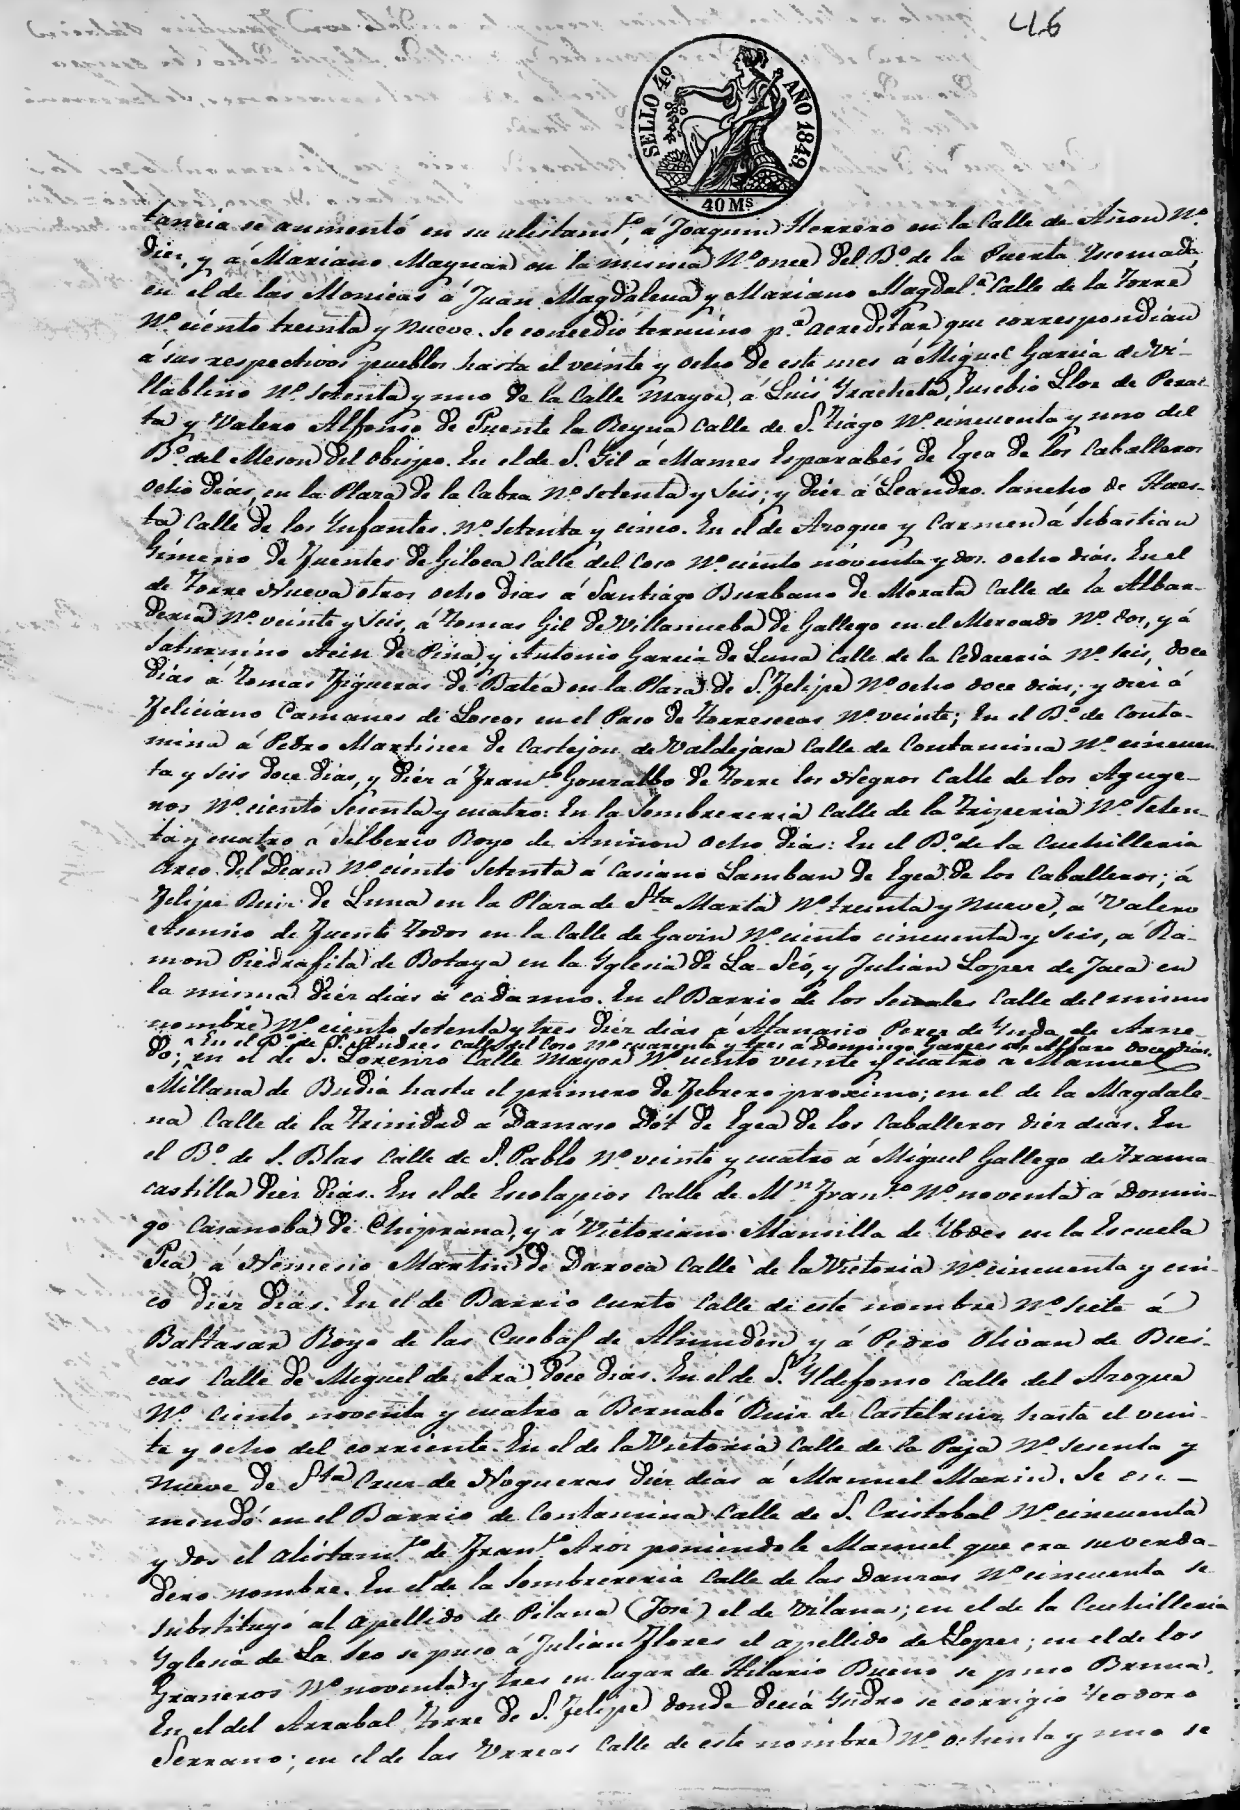 46
SELLO 4º AÑO 1849.
40 Ms
tancia se aumentó en su alistamto, á Joaquin Herrero en la Calle de Añon Nº
diez, y á Mariano Maynar en la misma Nº once del Bº de la Puerta Quemada,
en el de las Monicas á Juan Magdalena y Mariano Magdala Calle de la Torre
Nº ciento treinta y nueve. Se concedió termino pa acreditar que correspondian
á sus respectivos pueblos hasta el veinte y ocho de este mes á Miguel Garcia de Vi-
llablino Nº setenta y uno de la Calle mayor, á Luis Fracheta, Eusebio Llor de Peral-
ta y Valero Alfonso de Puente la Reyna Calle de S. Tiago Nº cincuenta y uno del
Bº del Meson del Obispo. En el de S. Gil á Mames Esparabés de Egea de los Caballeros
ocho dias, en la Plaza de la Cabra Nº setenta y seis; y diez á Leandro Sancho de Hues-
ta Calle de los Infantes Nº setenta y cinco. En el de Aroque y Carmen á Sebastian
Gimeno de Fuentes de Giloca Calle del Coso Nº ciento noventa y dos ocho dias. En el
de Torre Nueva otros ocho dias á Santiago Burbano de Morata Calle de la Albar-
deria Nº veinte y seis, á Tomas Gil de Villanueba de Gallego en el Mercado Nº dos, y á
Saturnino Acin de Pina, y Antonio Garcia de Luna Calle de la Cedaceria Nº seis, doce
dias á Tomas Figueras de Batea en la Plaza de S. Felipe Nº ocho doce dias; y diez á
Feliciano Camanes de Loscos en el Paso de Torresecas Nº veinte; En el Bº de Conta-
mina á Pedro Martinez de Castejon de Valdejasa Calle de Contamina Nº cincuen-
ta y seis doce dias, y diez á Franco Gonzalbo de Torre los Negros Calle de los Aguge-
ros Nº ciento sesenta y cuatro: En la Sombrereria Calle de la Triperia Nº seten-
ta y cuatro á Silberio Royo de Aniñon ocho dias: En el Bº de la Cuchilleria
Arco del Dean Nº ciento setenta á Casiano Lamban de Egea de los Caballeros; á
Felipe Ruiz de Luna en la Plaza de Sta Marta Nº treinta y nueve, á Valero
Asensio de Fuente Todos en la Calle de Gavin Nº ciento cincuenta y seis, á Ra-
mon Piedrafita de Botaya en la Yglesia de La Seo, y Julian Lopez de Jaca en
la misma diez dias á cada uno. En el Barrio de los Señales Calle del mismo
nombre Nº ciento setenta y tres diez dias á Atanasio Perez de Ynda de Arne-
En el Bº de S. Andres Calle del Coso Nº cuarenta y tres á Domingo Garces de Alfaro doce dias.
do; en el de S. Lorenzo Calle Mayor Nº ciento veinte y cuatro á Manuel
Millana de Budia hasta el primero de Febrero proximo; en el de la Magdale-
na Calle de la Trinidad á Damaso Dót de Egea de los Caballeros diez dias. En
el Bº de S. Blas Calle de S. Pablo Nº veinte y cuatro á Miguel Gallego de Trama-
castilla diez dias. En el de Escolapios Calle de Mn Franco Nº noventa á Domin-
go Casanoba de Chiprana, y á Victoriano Mansilla de Ybdes en la Escuela
Pia á Nemesio Martin de Daroca Calle de la Victoria Nº cincuenta y cin-
co diez dias. En el de Barrio curto Calle de este nombre Nº siete á
Baltasar Royo de las Cuebas de Almuden y á Pedro Olivan de Bies-
cas Calle de Miguel de Ara doce dias. En el de S. Yldefonso Calle del Azoque
Nº ciento noventa y cuatro á Bernabé Ruiz de Castelruiz hasta el vein-
te y ocho del corriente. En el de la Victoria Calle de la Paja Nº sesenta y
nueve de Sta Cruz de Nogueras diez dias á Manuel Marin. Se en-
mendó en el Barrio de Contamina Calle de S. Cristobal Nº cincuenta
y dos el alistamto de Franco Aroz poniendole Manuel que era su verda-
dero nombre. En el de la Sombrereria Calle de las Danzas Nº cincuenta se
substituyó al apellido de Pilana (José) el de Vilanas; en el de la Cuchilleria
Yglesia de La Seo se puso á Julian Flores el apellido de Lopez; en el de los
Graneros Nº noventa y tres en lugar de Hilario Bueno se puso Bruna.
En el del Arrabal Torre de S. Felipe donde decia Ysidro se corrigio Teodoro
Serrano; en el de las Urreas Calle de este nombre Nº ochenta y uno se